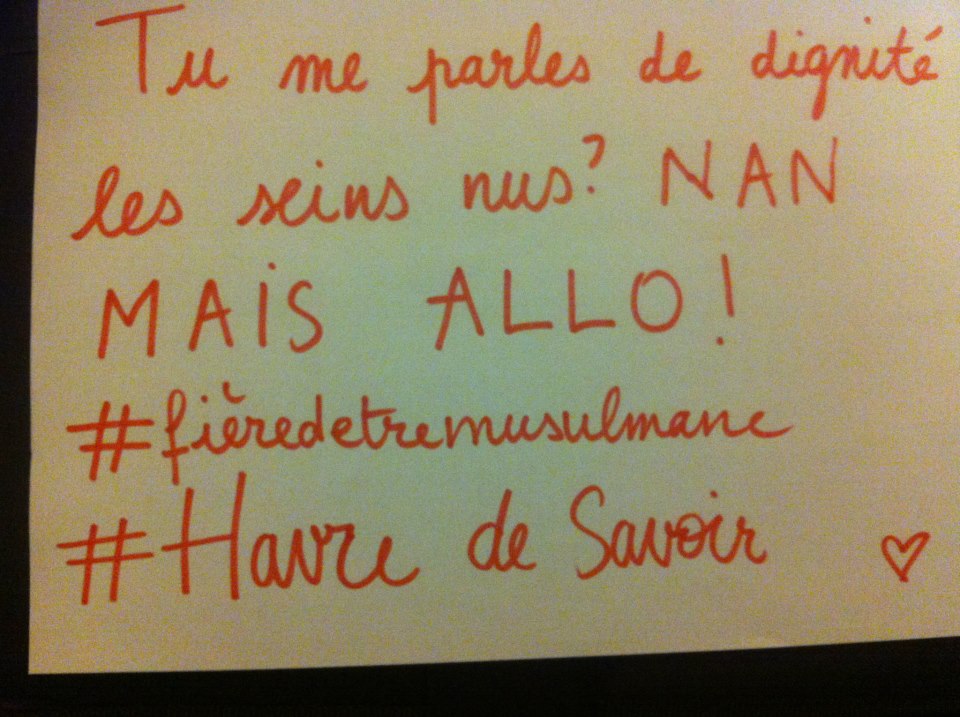 Tu me parles de dignité
les seins nus? NAN
MAIS ALLO!
#fièredetremusulmane
#Havre de Savoir ♡